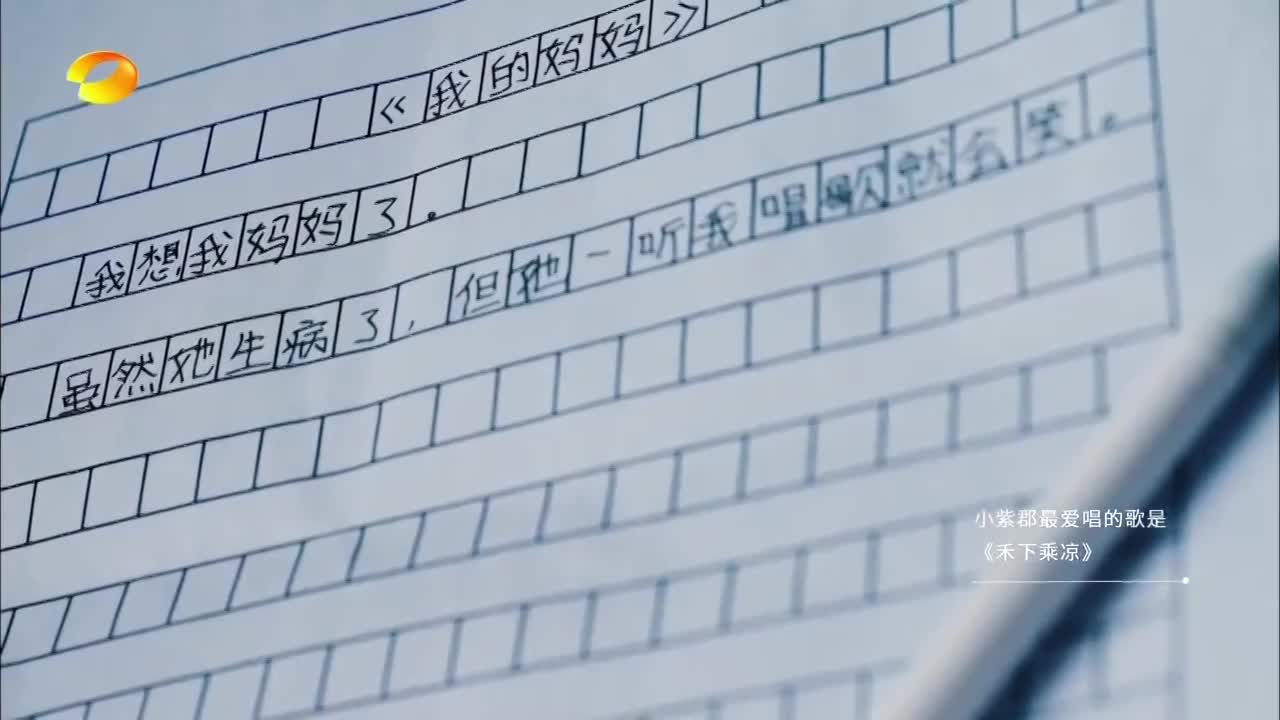 《我的妈妈》
我想我妈妈了。
虽然她生病了，但她一听我唱歌就会笑。
小紫郡最爱唱的歌是
《禾下乘凉》